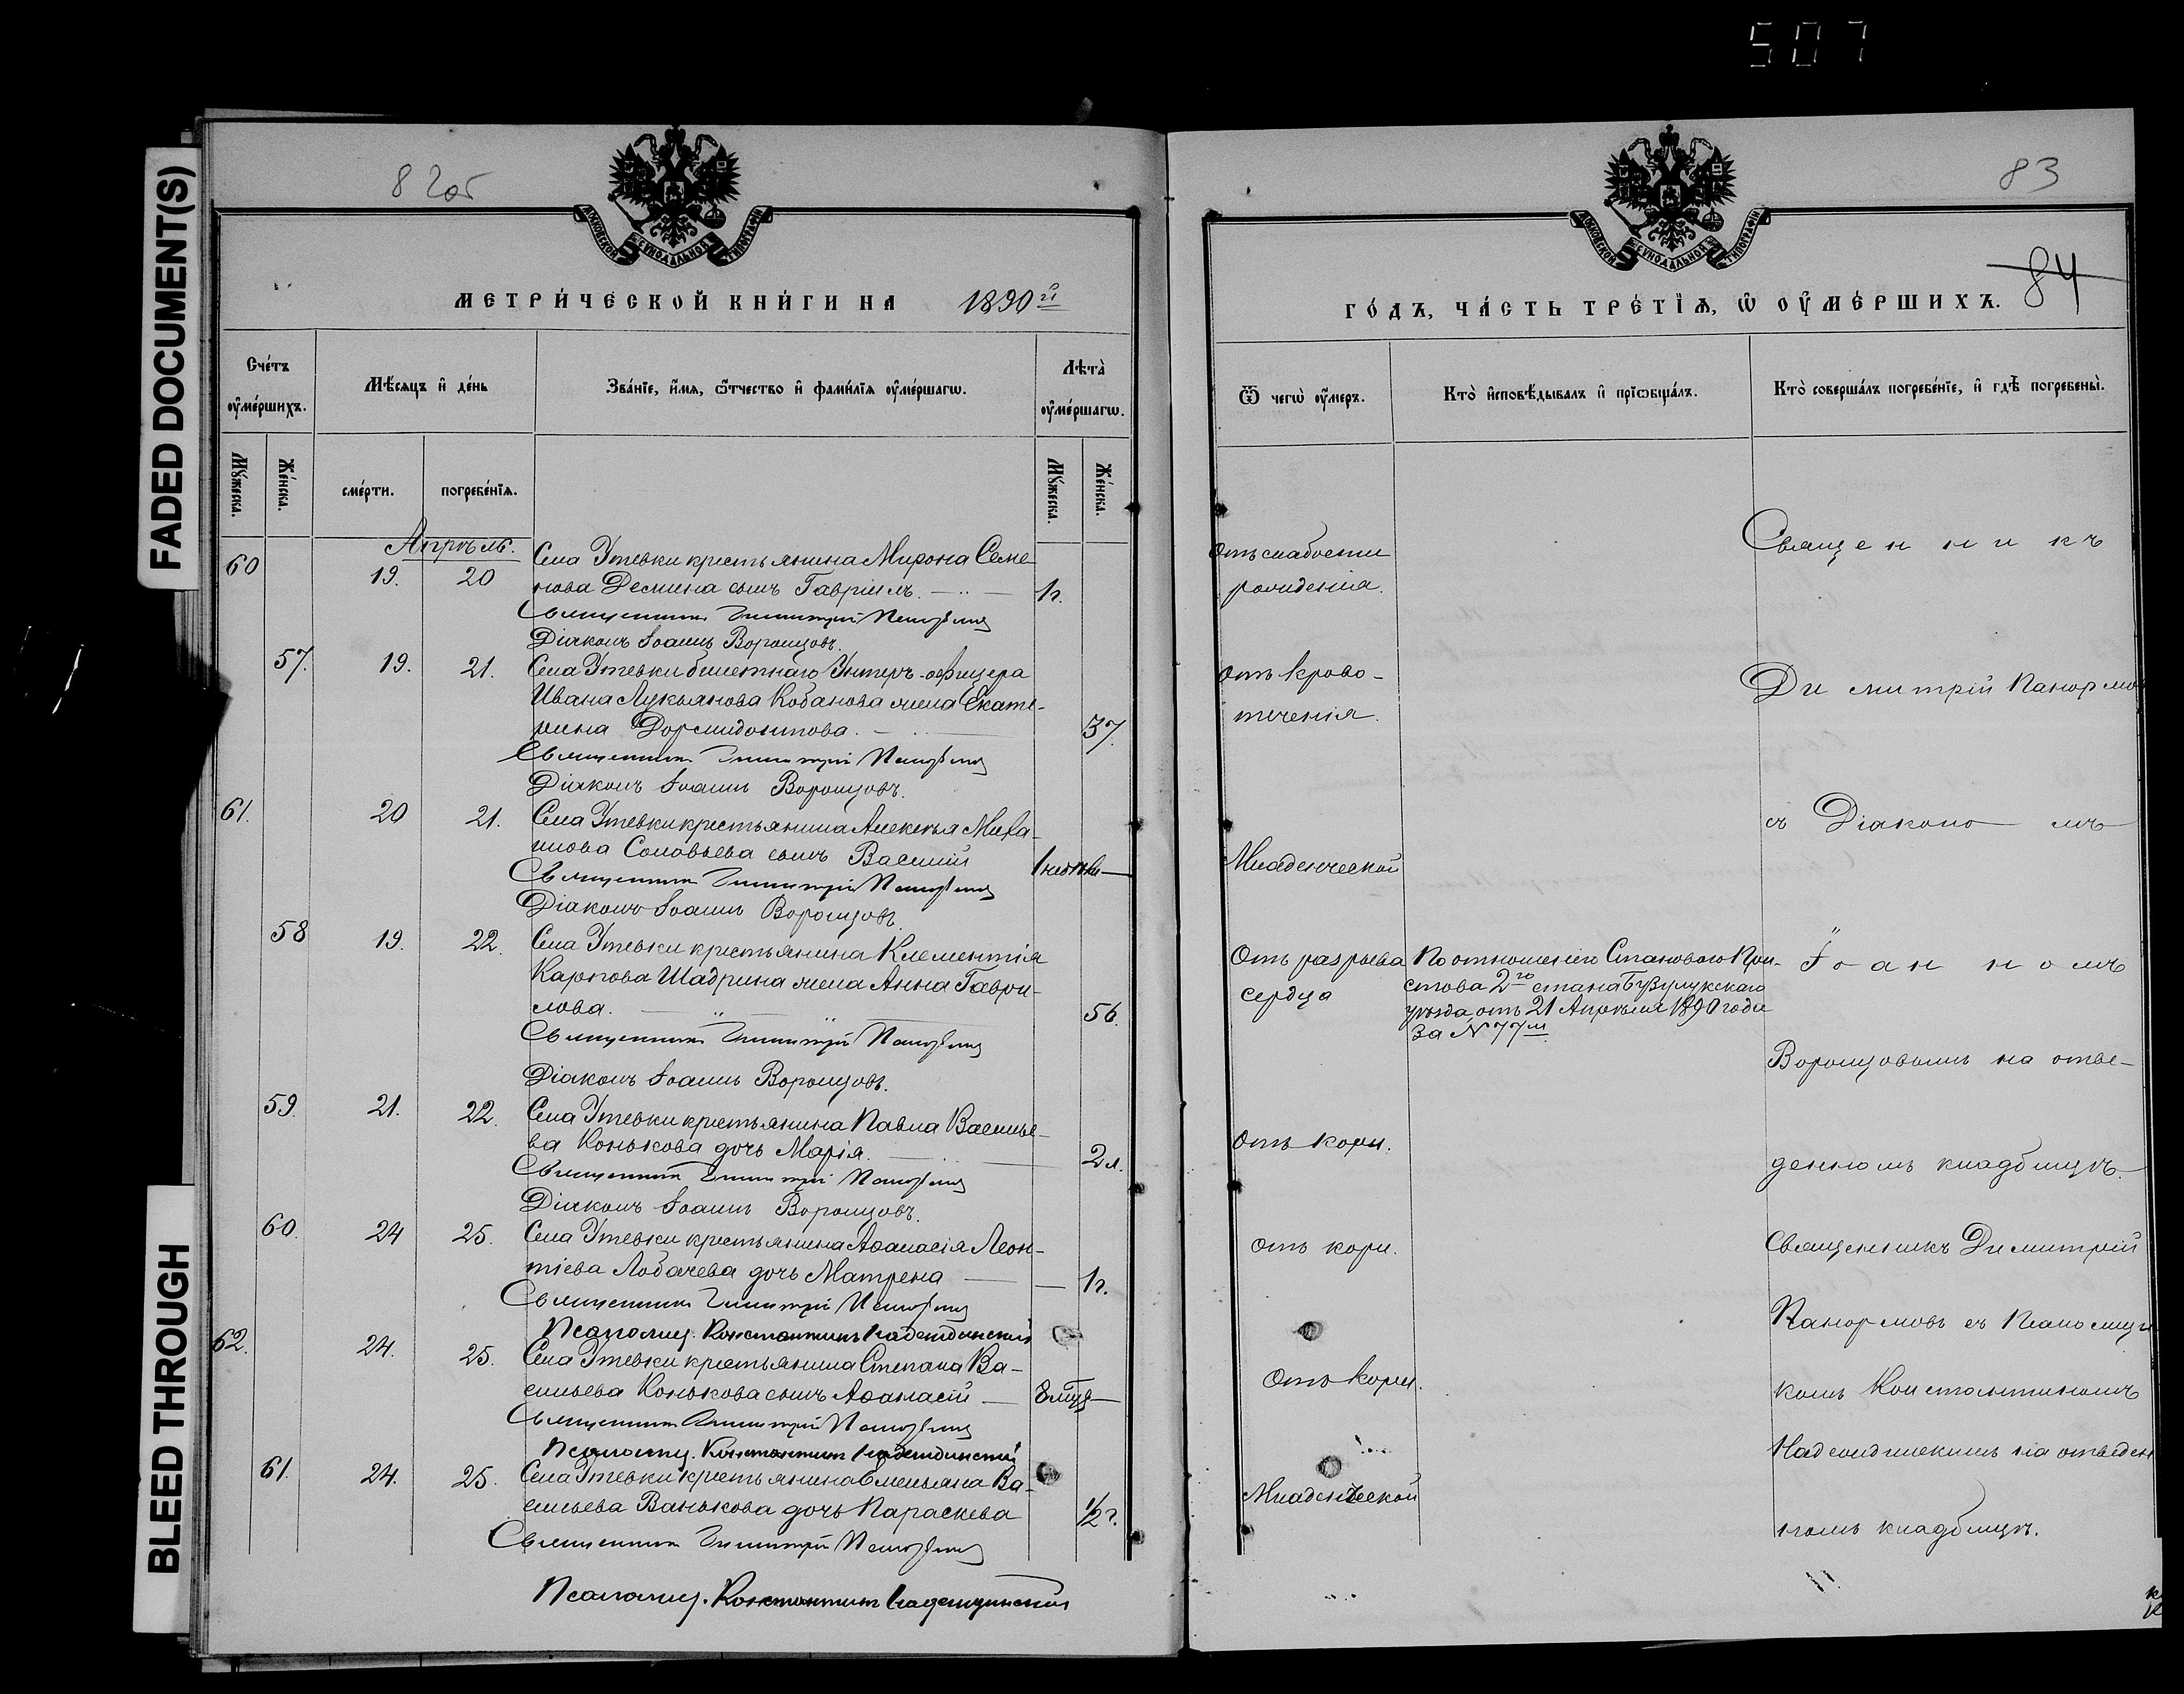 507
FADED DOCUMENT(S)
BLEED THROUGH
82об
МОСКОВСКОЙ СѴНОДАЛЬНОЙ ТИПОГРАФІИ
МЕТРИ́ЧЕСКОЙ КНИ́ГИ НА 1890й
Сче́тъ оу҆ме́ршихъ.
Мѣ́сяцъ и҆ де́нь
Зва́нїе, и҆́мя, ѻ҆́тчество и҆ фами́лїя оу҆ме́ршагѡ.
Лѣта̀ оу҆ме́ршагѡ.
Мꙋ́жеска.
Же́нска.
сме́рти.
погребе́нїѧ.
Мꙋ́жеска.
Же́нска.
Апрѣль.
60 19. 20 Села Утевки крестьянина Мирона Семе-
нова Демина сынъ Гавріилъ. 1г.
Священникъ Димитрій Панормовъ
Діаконъ Іоаннъ Воронцовъ.
57. 19. 21. Села Утевки билетнаго Унтеръ-офицера
Ивана Лукьянова Кобанова жена Екате-
рина Дормидонтова. 37.
Священникъ Димитрій Панормовъ
Діаконъ Іоаннъ Воронцовъ.
61. 20 21. Села Утевки крестьянина Алексѣя Миха-
илова Соловьева сынъ Василій 1 недѣли
Священникъ Димитрій Панормовъ
Діаконъ Іоаннъ Воронцовъ.
58 19. 22. Села Утевки крестьянина Клементія
Карпова Шадрина жена Анна Гаври-
лова. 56.
Священникъ Димитрій Панормовъ
Діаконъ Іоаннъ Воронцовъ.
59. 21. 22. Села Утевки крестьянина Павла Василье-
ва Конькова дочь Марія. 2л.
Священникъ Димитрій Панормовъ
Діаконъ Іоаннъ Воронцовъ.
60. 24 25. Села Утевки крестьянина Аѳанасія Леон-
тіева Лобачева дочь Матрена 1г.
Священникъ Димитрій Панормовъ
Псаломщ. Константинъ Надеждинскій
62. 24. 25. Села Утевки крестьянина Степана Ва-
сильева Конькова сынъ Аѳанасій 8 мцъ
Священникъ Димитрій Панормовъ
Псаломщ. Константинъ Надеждинскій
61. 24. 25. Села Утевки крестьянина Емельяна Ва-
сильева Ванькова дочь Параскева 1/2 г.
Священникъ Димитрій Панормовъ
Псаломщ. Константинъ Надеждинскій
83
84
МОСКОВСКОЙ СѴНОДАЛЬНОЙ ТИПОГРАФІИ
ГО́ДЪ, ЧА́СТЬ ТРЕ́ТЇѦ, Ѡ҆ ОУ҆МЕ́РШИХЪ.
Ѿ чегѡ̀ оу҆́меръ.
Кто̀ и҆сповѣ́дывалъ и҆ прїѡбща́лъ.
Кто̀ соверша́лъ погребе́нїе, и҆ гдѣ̀ погребены̀.
Отъ слабости
рожденія.
Священникъ
Отъ крово-
теченія.
Димитрій Панормо
съ Діакономъ
Младенческой
Отъ разрыва
сердца
По отношенію Становаго При-
става 2го стана Бузулукскаго
уѣзда отъ 21 Апрѣля 1890 года
за № 77м
Іоанномъ
Воронцовымъ на отве-
Отъ кори.
денномъ кладбищѣ.
Отъ кори.
Священникъ Димитрій
Панормовъ съ Псаломщи
Отъ кори.
комъ Константиномъ
Надеждинскимъ на отведен
Младенческой
номъ кладбищѣ.